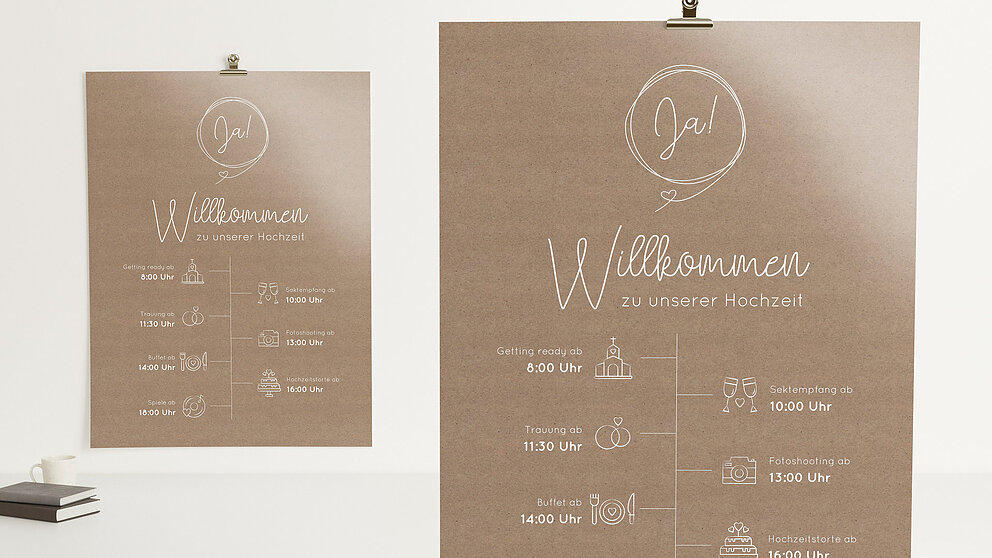 Ja!
Willkommen
zu unserer Hochzeit
Getting ready ab
8:00 Uhr
Sektempfang ab
10:00 Uhr
Trauung ab
11:30 Uhr
Fotoshooting ab
13:00 Uhr
Buffet ab
14:00 Uhr
Hochzeitstorte ab
16:00 Uhr
Spiele ab
18:00 Uhr
Ja!
Willkommen
zu unserer Hochzeit
Getting ready ab
8:00 Uhr
Sektempfang ab
10:00 Uhr
Trauung ab
11:30 Uhr
Fotoshooting ab
13:00 Uhr
Buffet ab
14:00 Uhr
Hochzeitstorte ab
16:00 Uhr